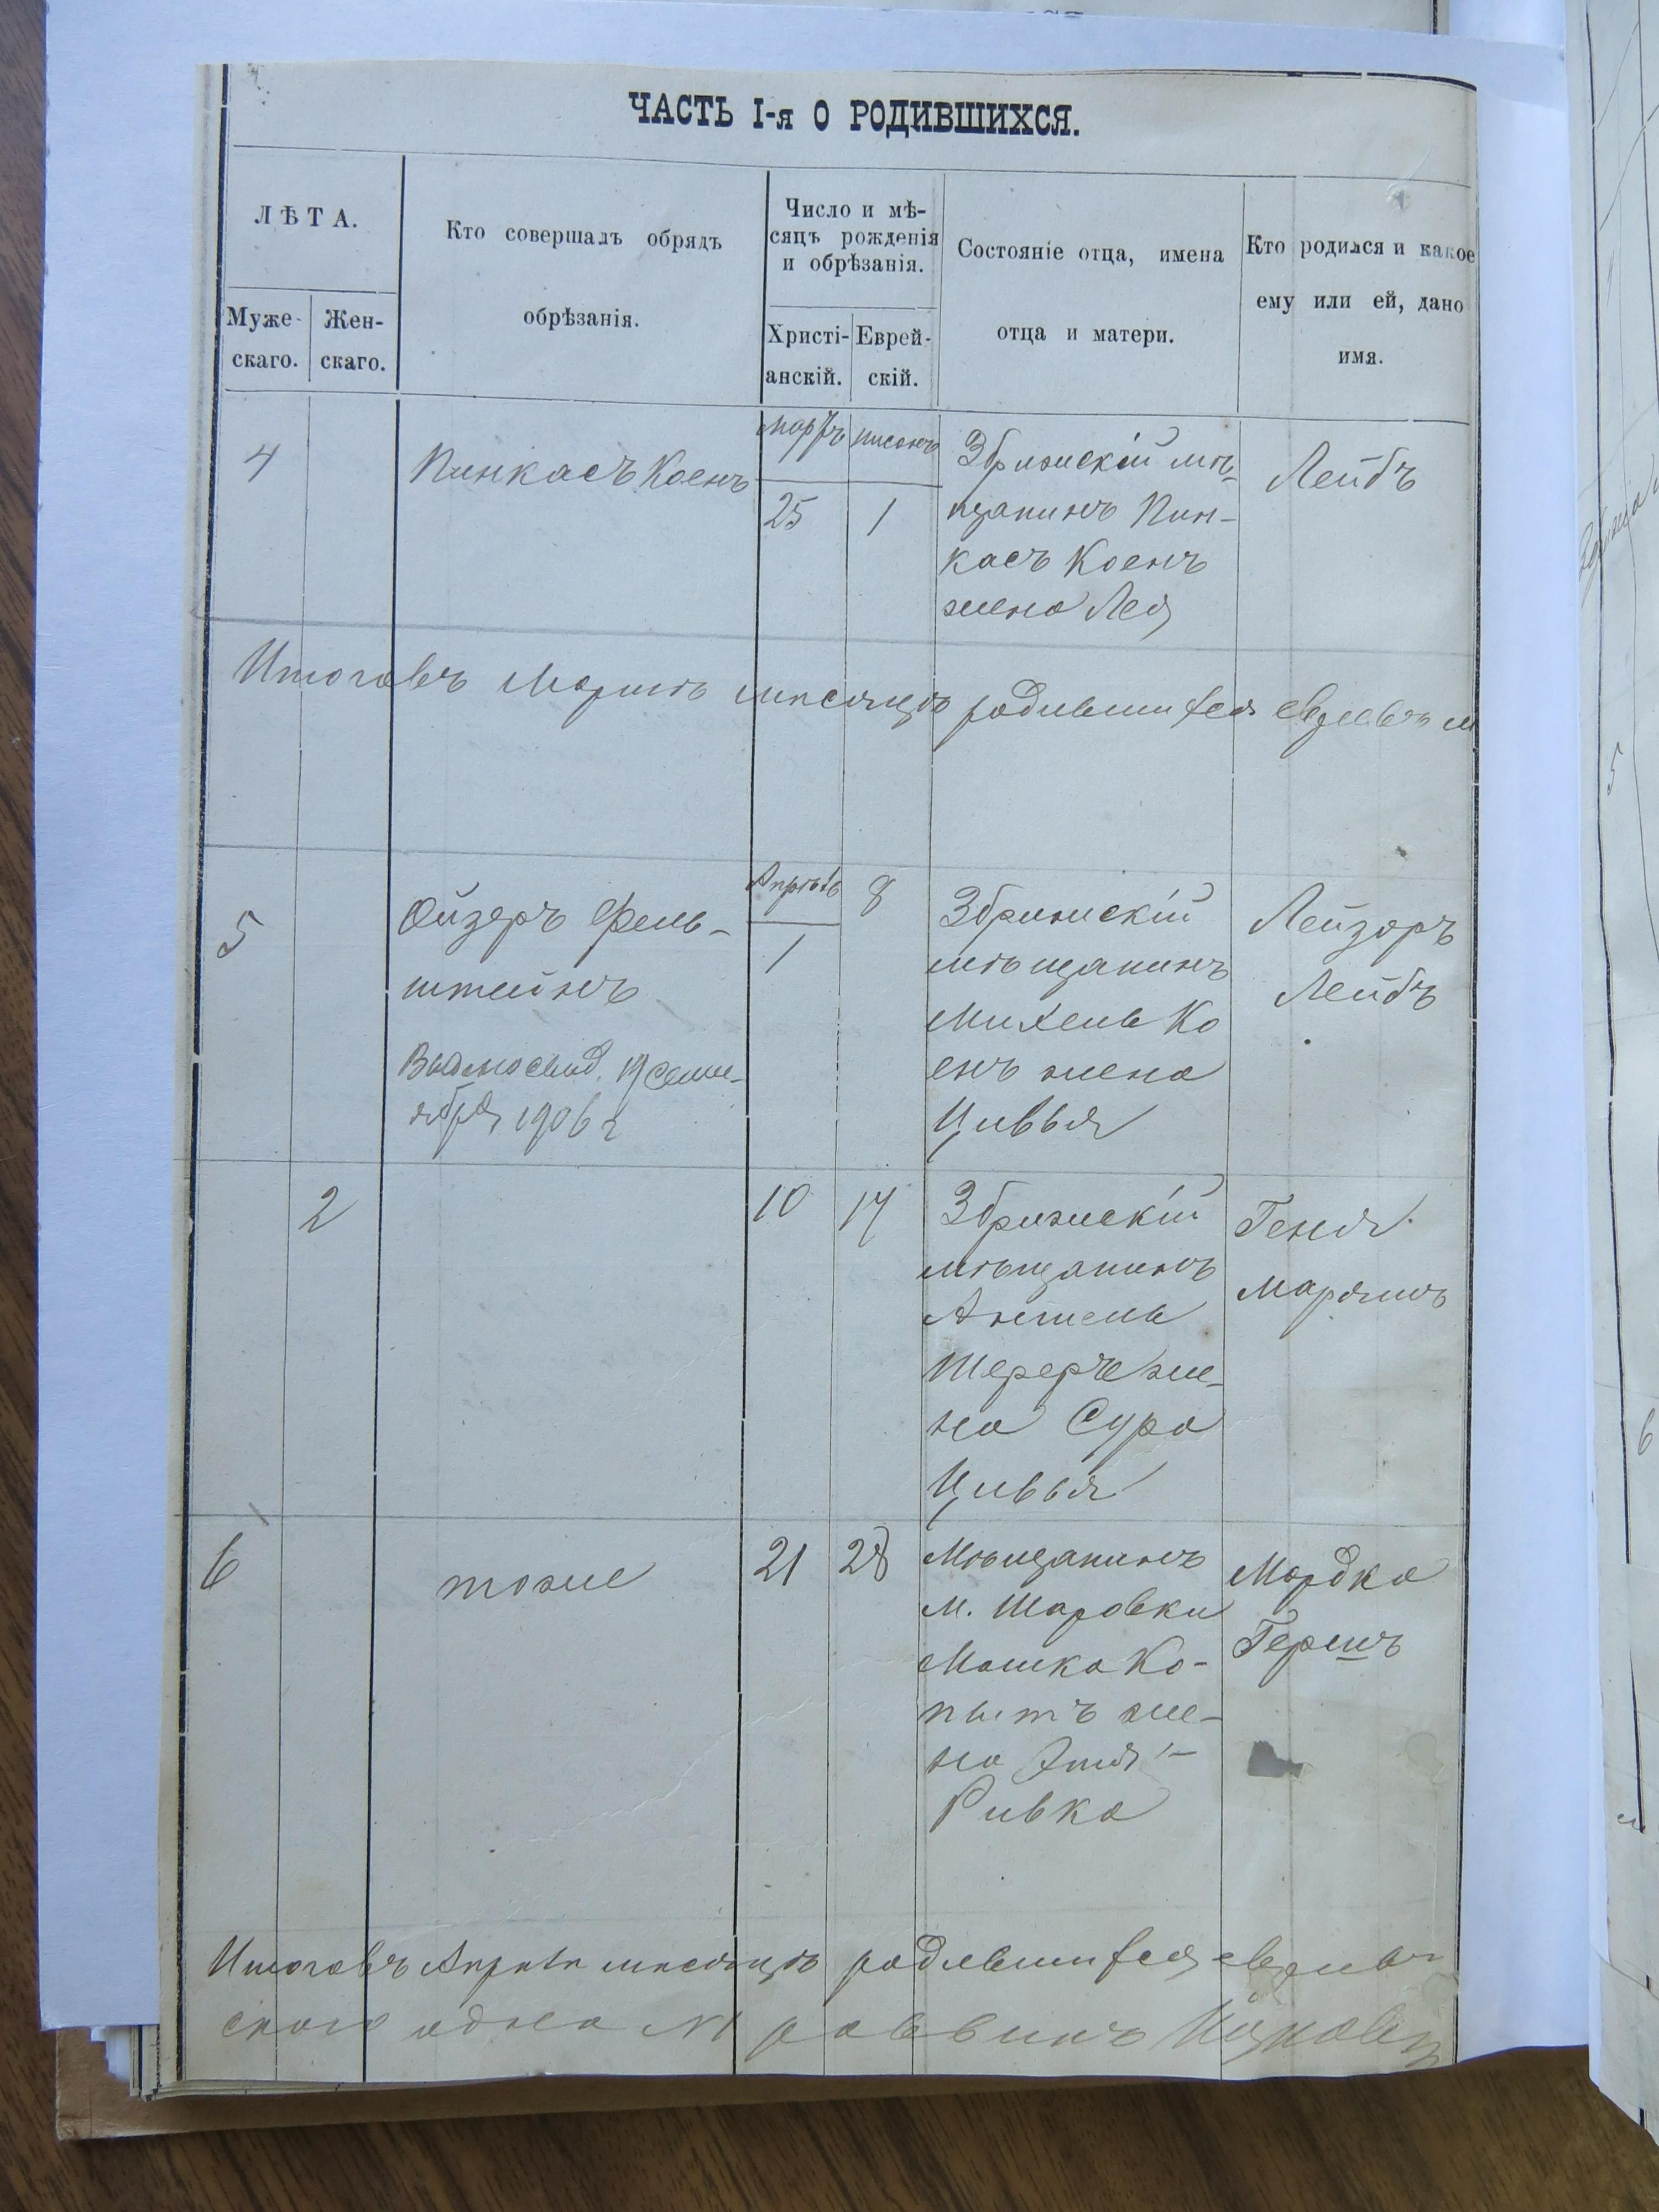 ЧАСТЬ I-я О РОДИВШИХСЯ.
ЛѢТА.
Муже-
скаго.
Жен-
скаго.
Кто совершалъ обрядъ
обрѣзанія.
Число и мѣ-
сяцъ рожденія
и обрѣзанія.
Христі-
анскій.
Еврей-
скій.
Состояніе отца, имена
отца и матери.
Кто родился и какое
ему или ей, дано
имя.
4
Пинкасъ Коенъ
мартъ
25
нисонъ
1
Збрижскій мѣ-
щанинъ Пин-
касъ Коенъ
жена Лея
Лейбъ
Итоговъ Мартѣ мѣсяцѣ родившихся евреевъ м
5
Ойзеръ Фель-
штейнъ
19 сент-
ября 1906 г
Апрѣль
1
8
Збрижскій
мѣщанинъ
Михель Ко
енъ жена
Цивья
Лейзоръ
Лейбъ
2
10
17
Збрижскій
мѣщанинъ
Аншель
Шереръ же-
на Сура
Цивья
Геня
Марямъ
6
тоже
21
28
Мѣщанинъ
м. Шаровки
Мошко Ко-
пытъ же-
на Этя-
Ривка
Мордко
Гершъ
Итоговъ Апрѣлѣ мѣсяцѣ родившихся евреевъ
ского одна №1 раввинъ